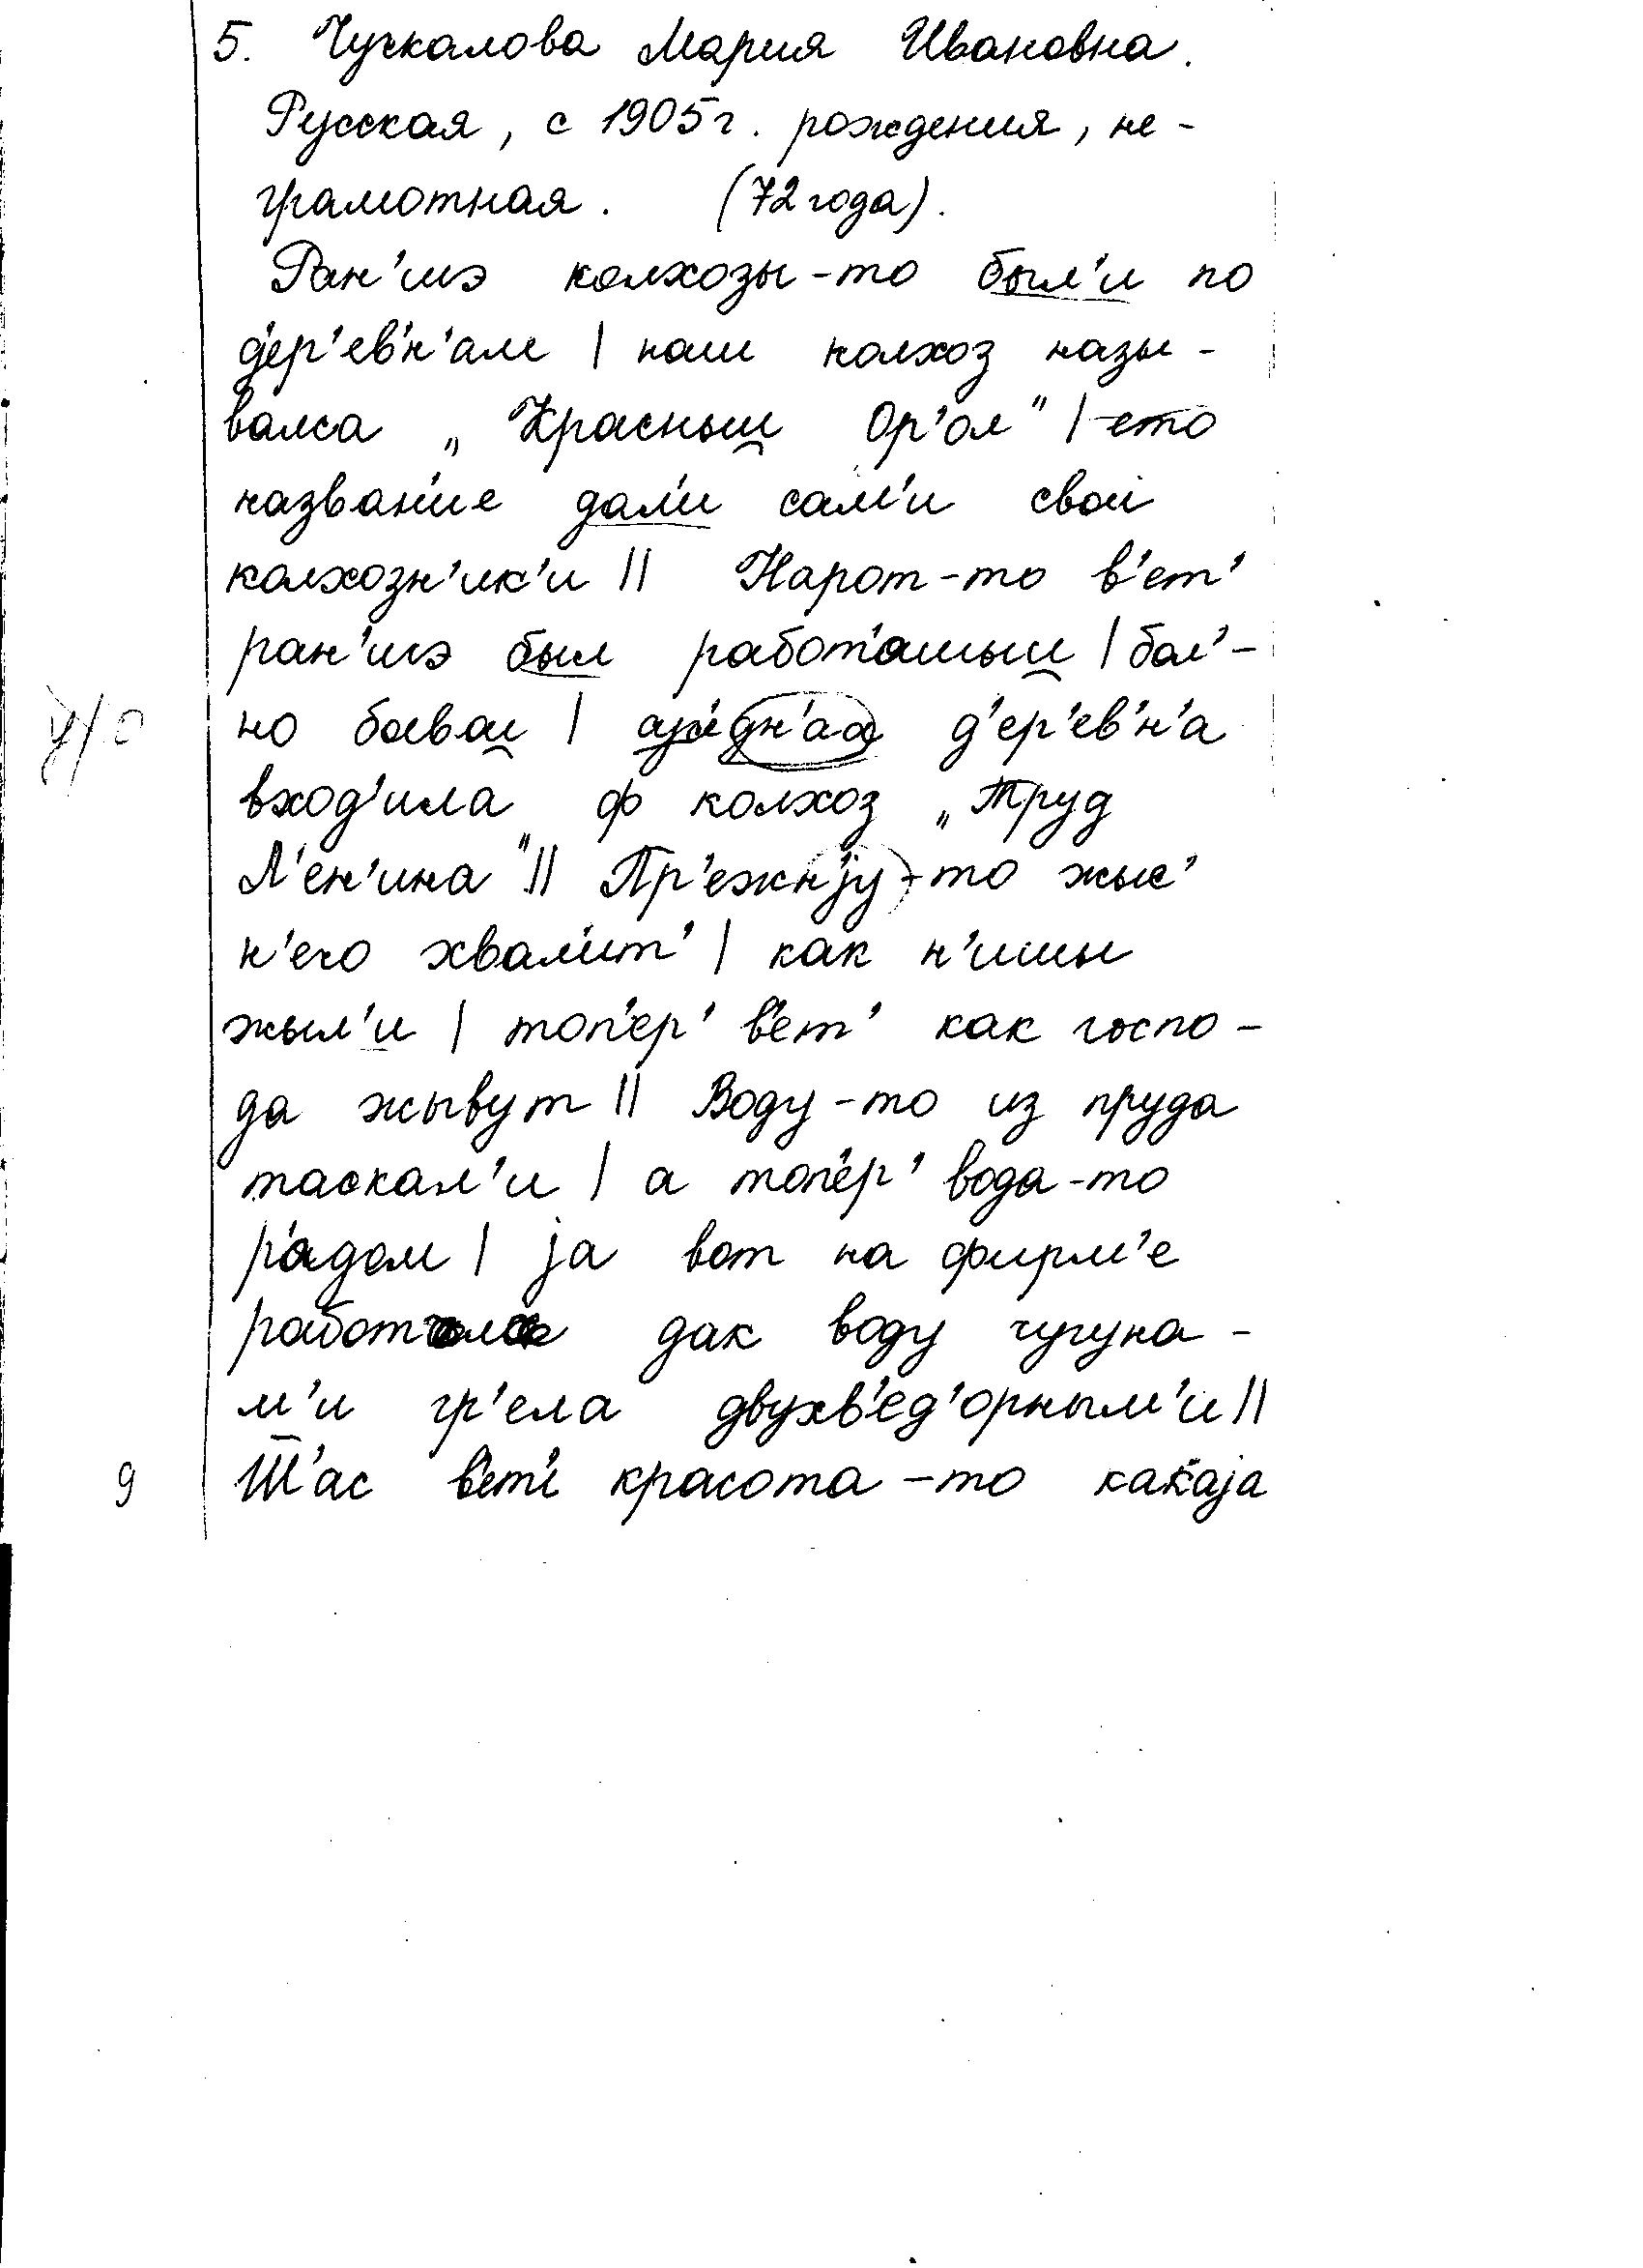 5. Чучкалова Мария Ивановна.
Русская, с 1905 г. рождения, не-
грамотная. (72 года).
Ран'шэ колхозы-то был'и по
д'ер'ев'н'ам | наш колхоз назы-
валса „Красныи̯ Ор'ол" | ето
назван'ие дал'и сам'и свои
колхозн'ик'и || Нарот-то в'ет'
ран'шэ был работ'ашыи̯ | бол'-
но боевои̯ | д'ер'ев'н'а
вход'ила ф колхоз „Труд
Л'ен'ина" || Пр'ежн'jу-то жыс'
н'его хвал'ит' | как н'ишы
жыл'и | топ'ер' в'ет' как госпо-
да жывут || Воду-то из пруда
таскал'и | а топ'ер' вода-то
р'адом | jа вот на фирм'е
дак воду чугуна-
м'и гр'ела двухв'ед'орным'и ||
9 Ш̅'ас в'ет'и красота-то какаjа